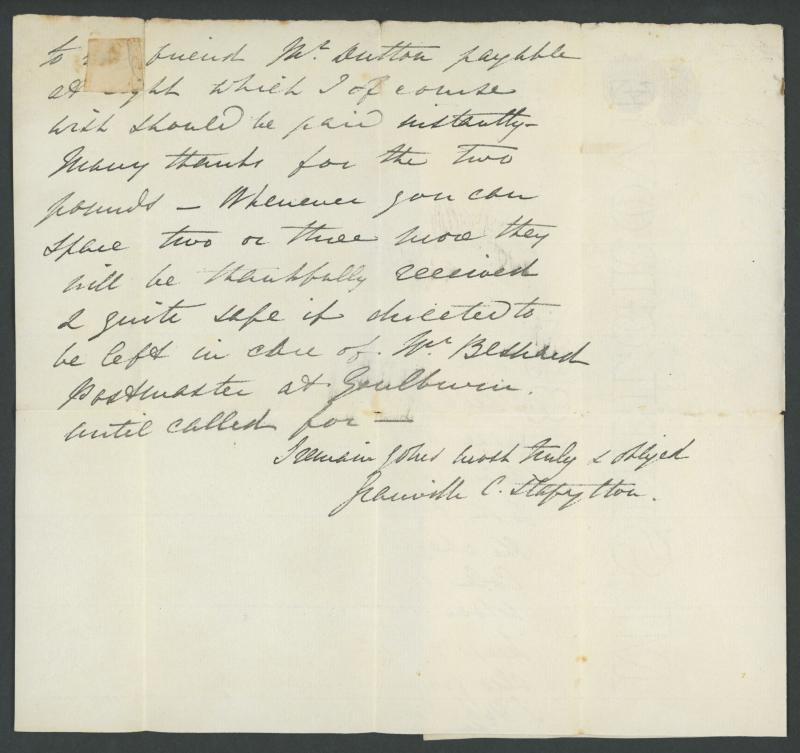 to friend Mr. Dutton payable
at sight which I of course
wish should be paid instantly—
Many thanks for the two
pounds — Whenever you can
spare two or three more they
will be thankfully received
& quite safe if directed to
be left in care of Mr
Postmaster at Goulburn.
until called for —
I remain yours most truly & obliged
Granville C. Stapylton.